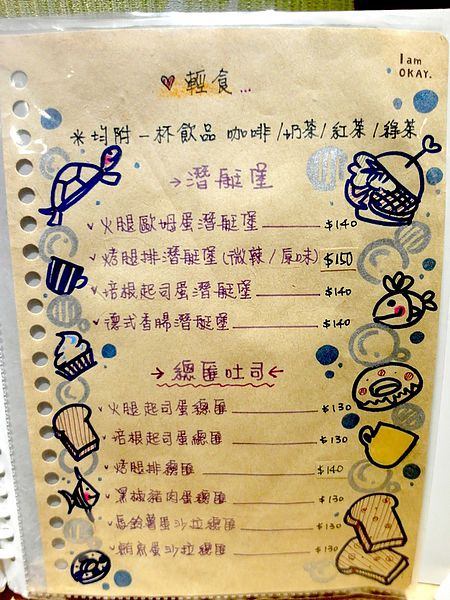 I am
OKAY.
♥輕食...
※均附一杯飲品 咖啡/奶茶/紅茶/綠茶
→潛艇堡
✓火腿歐姆蛋潛艇堡 $140
✓烤腿排潛艇堡(微辣/原味) $150
✓培根起司蛋潛艇堡 $140
✓德式香腸潛艇堡 $140
→總匯吐司←
✓火腿起司蛋總匯 $130
✓培根起司蛋總匯 $130
✓烤腿排總匯 $140
✓黑椒豬肉蛋總匯 $130
✓馬鈴薯蛋沙拉總匯 $130
✓鮪魚蛋沙拉總匯 $130